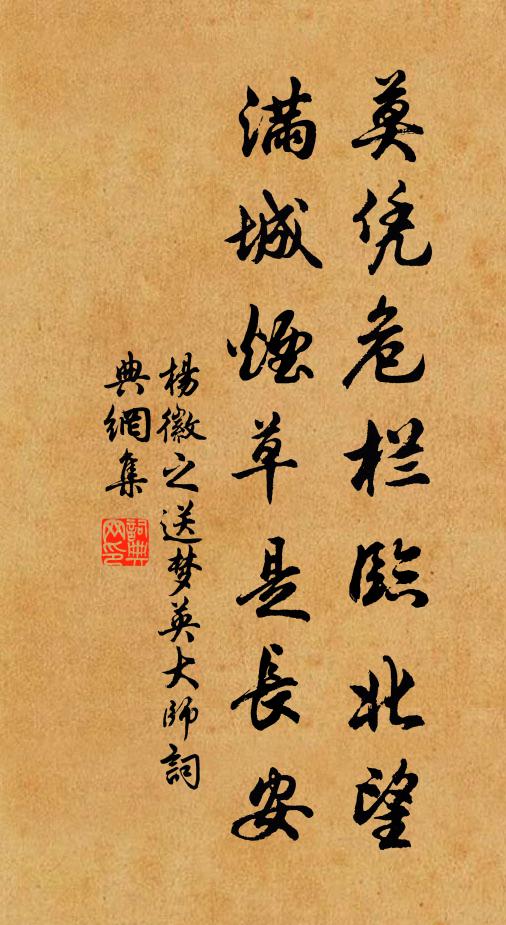 莫凭危栏临北望
满城烟草是长安
杨徽之送梦英大师词
典网集
词典网印